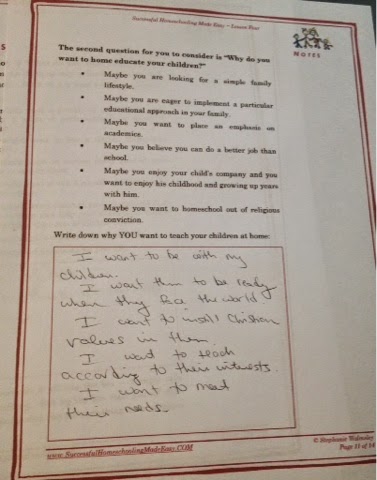 Successful Homeschooling Made Easy – Lesson Four
NOTES
The second question for you to consider is "Why do you
want to home educate your children?"
• Maybe you are looking for a simple family
lifestyle.
• Maybe you are eager to implement a particular
educational approach in your family.
• Maybe you want to place an emphasis on
academics.
• Maybe you believe you can do a better job than
school.
• Maybe you enjoy your child's company and you
want to enjoy his childhood and growing up years
with him.
• Maybe you want to homeschool out of religious
conviction.
Write down why YOU want to teach your children at home:
I want to be with my
children.
I want them to be ready
when they face the world
I want to instill Christian
values in them.
I want to teach
according to their interests.
I want to meet
their needs.
© Stephanie Walmsley
www.SuccessfulHomeschoolingMadeEasy.COM
Page 11 of 14